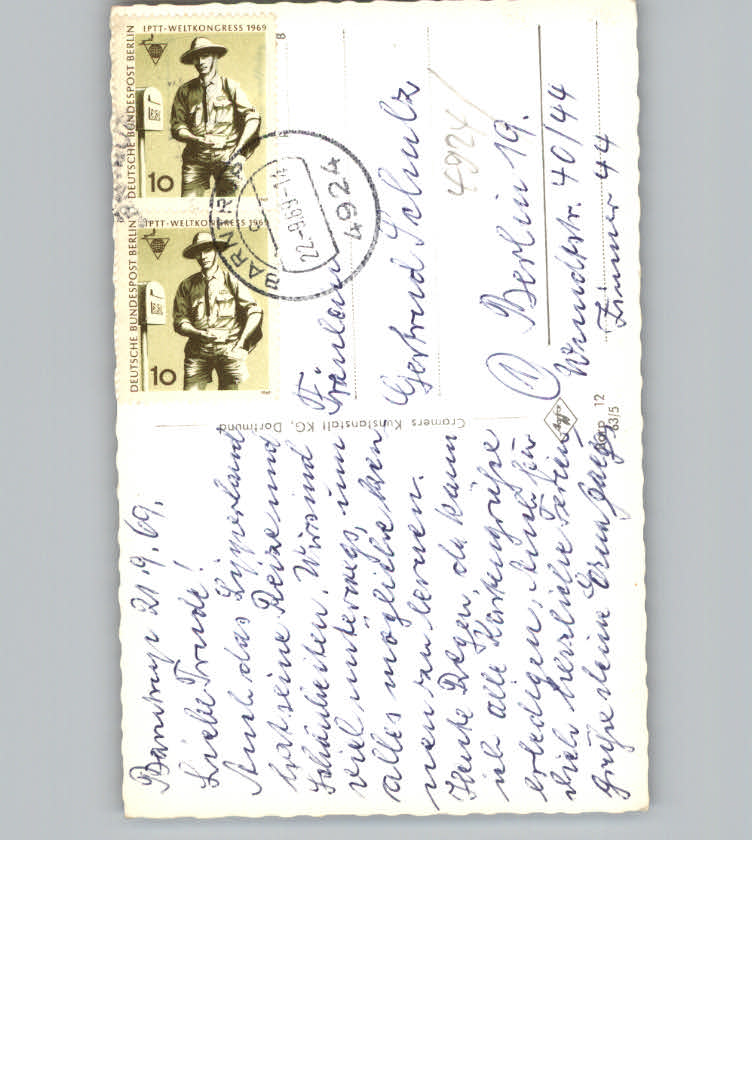 Barntrup 21.9.69.
Liebe Trude!
Auch das Lipperland
hat seine Reize und
Schönheiten. Wir sind
viel unterwegs, um
alles mögliche kennen
zu lernen.
Heute Regen, da kann
ich alle Kartengrüße
erledigen. Auch für
Dich herrliche Ferien
grüße Deine Erna
Cramers Kunstanstalt KG, Dortmund
12
63/5
DEUTSCHE BUNDESPOST BERLIN
IPTT-WELTKONGRESS 1969
10
DEUTSCHE BUNDESPOST BERLIN
IPTT-WELTKONGRESS 1969
10
BARNTRUP
22-9.69-14
4924
Fräulein
Gertrud Schulz
4924
1 Berlin 19.
Wundtstr. 40/44
Zimmer 44